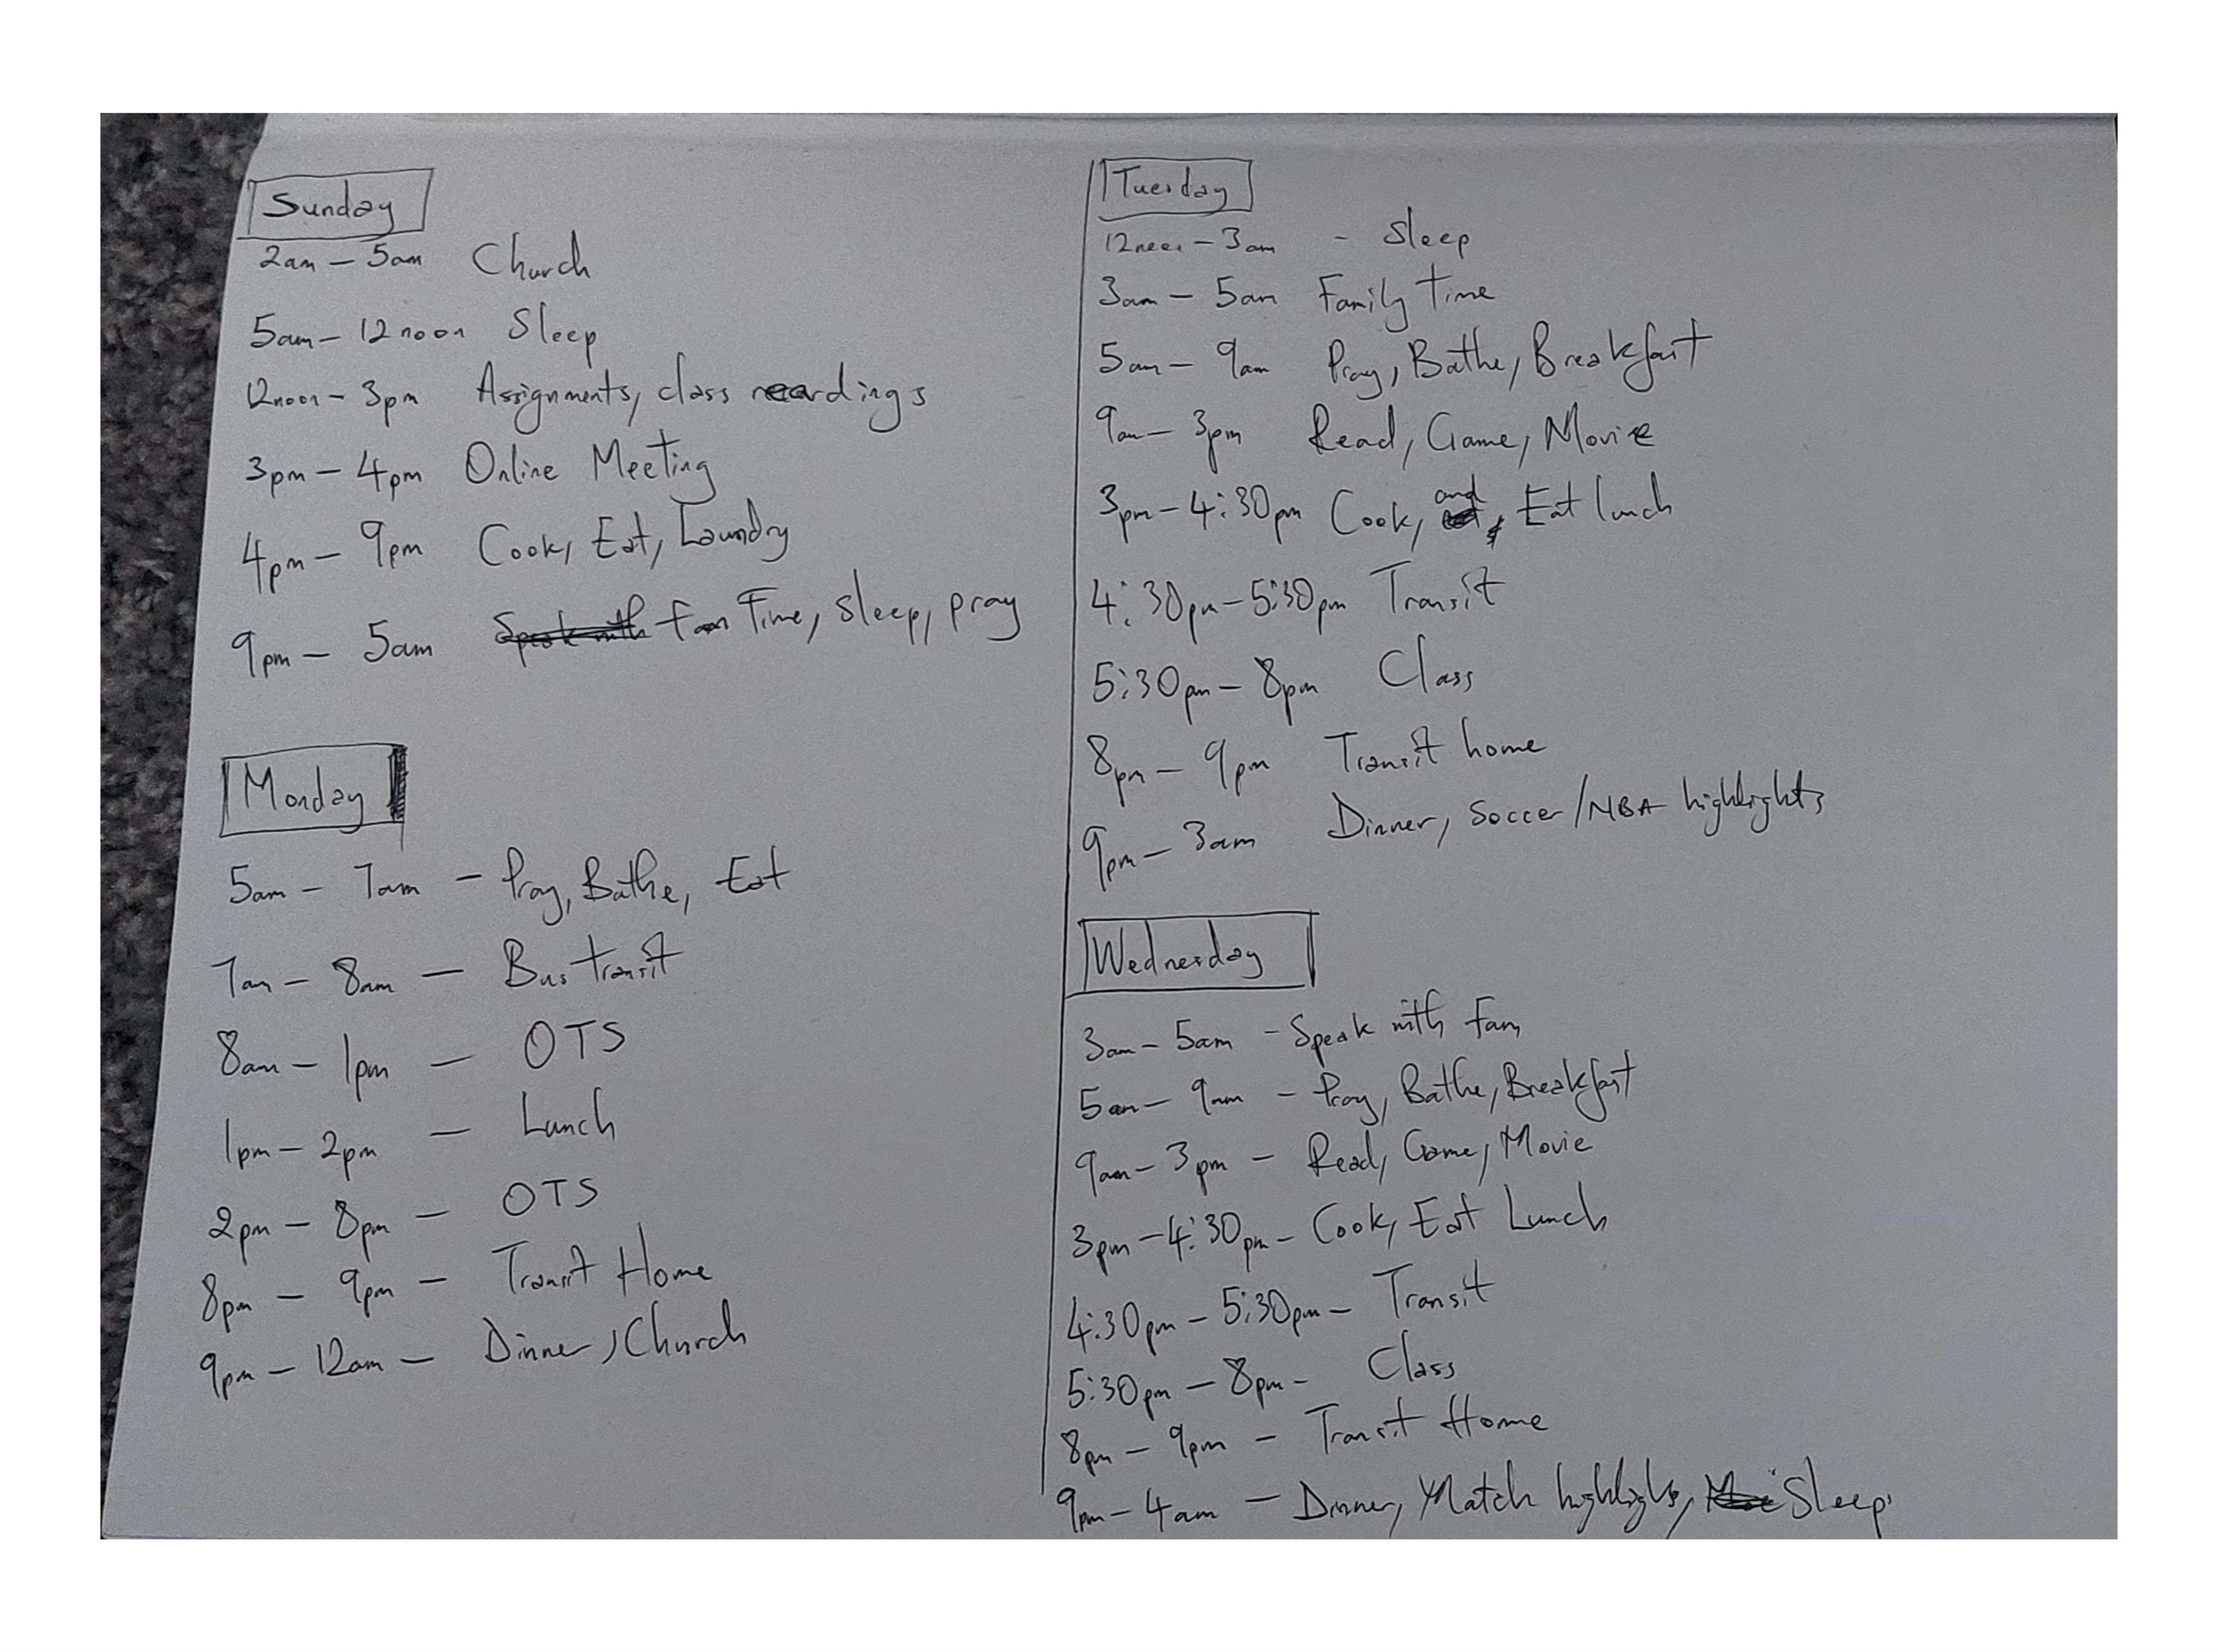 Sunday
2am - 5am Church
5am - 12noon Sleep
12noon - 3pm Assignments, class readings
3pm - 4pm Online Meeting
4pm - 9pm Cook, Eat, Laundry
9pm - 5am Speak with fam Time, Sleep, pray
Monday
5am - 7am - Pray, Bathe, Eat
7am - 8am - Bus transit
8am - 1pm - OTS
1pm - 2pm - Lunch
2pm - 8pm - OTS
8pm - 9pm - Transit Home
9pm - 12am - Dinner, Church
Tuesday
12noon - 3am - Sleep
3am - 5am Family time
5am - 9am Pray, Bathe, Breakfast
9am - 3pm Read, Game, Movie
3pm - 4:30pm Cook, and Eat lunch
4:30pm - 5:30pm Transit
5:30pm - 8pm Class
8pm - 9pm Transit home
9pm - 3am Dinner, Soccer/NBA highlights
Wednesday
3am - 5am - Speak with fam
5am - 9am - Pray, Bathe, Breakfast
9am - 3pm - Read, Game, Movie
3pm - 4:30pm - Cook, Eat Lunch
4:30pm - 5:30pm - Transit
5:30pm - 8pm - Class
8pm - 9pm - Transit Home
9pm - 4am - Dinner, Match highlighs, Sleep